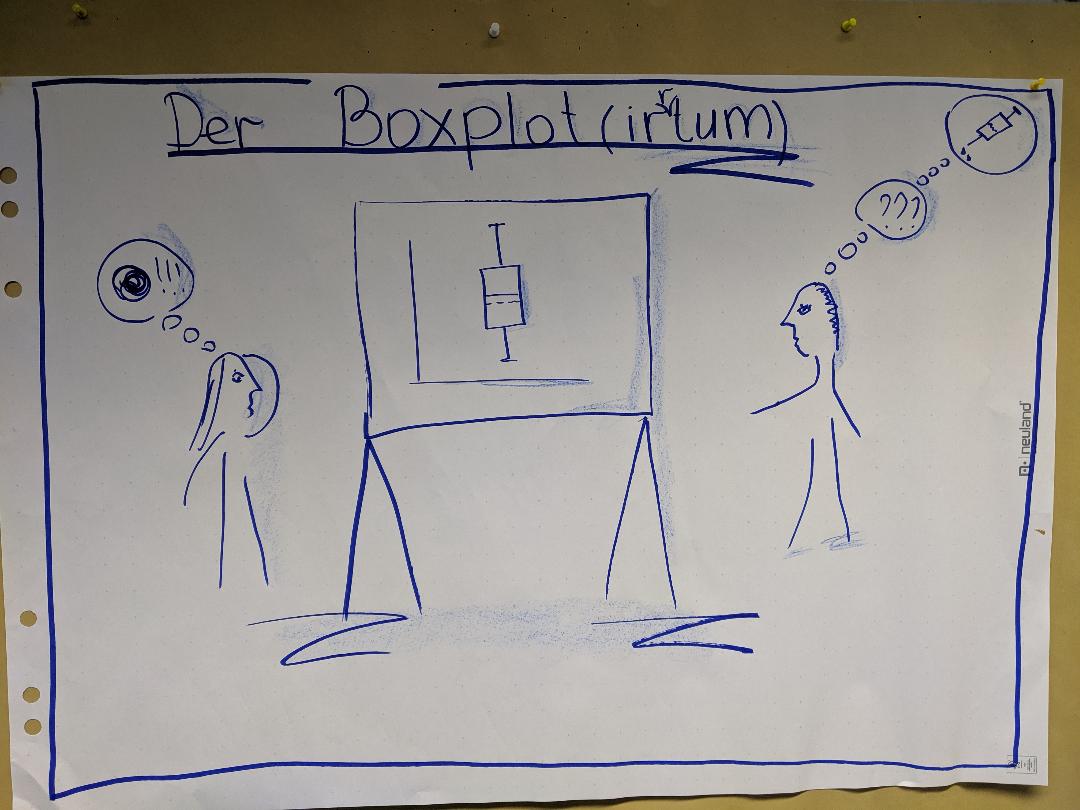 Der Boxplot (irrtum)
!!!
???
neuland